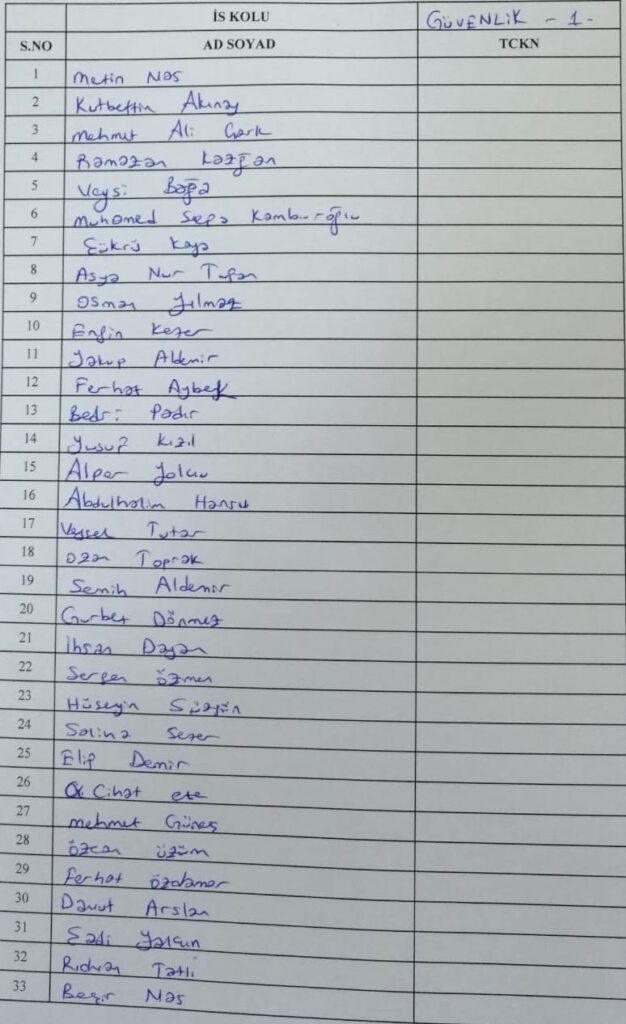 İS KOLU GÜVENLİK - 1 -
S.NO AD SOYAD TCKN
1 Metin Nas
2 Kutbettin Akınay
3 Mehmut Ali Çark
4 Ramazan Kazğan
5 Veysi Boğa
6 Muhamed Kamburoğlu
7 Şükrü Kaya
8 Asya Nur Tufan
9 Osman Yılmaz
10 Engin Kezer
11 Yakup Aldemir
12 Ferhat Aybek
13 Bedri Padır
14 Yusuf Kızıl
15 Alper Yolcu
16 Abdulhalim Hansu
17 Veysel Tutar
18 Ozan Toprak
19 Semih Aldemir
20 Gurbet Dönmez
21 İhsan Dayan
22 Sergen Özmen
23 Hüseyin
24 Salina Sezer
25 Elip Demir
26 Cihat ete
27 Mehmet Güneş
28 Özcan Üzüm
29 Ferhat Özdamar
30 Davut Arslan
31 Şadi Yalçun
32 Rıdvan Tatlı
33 Beşir Nas